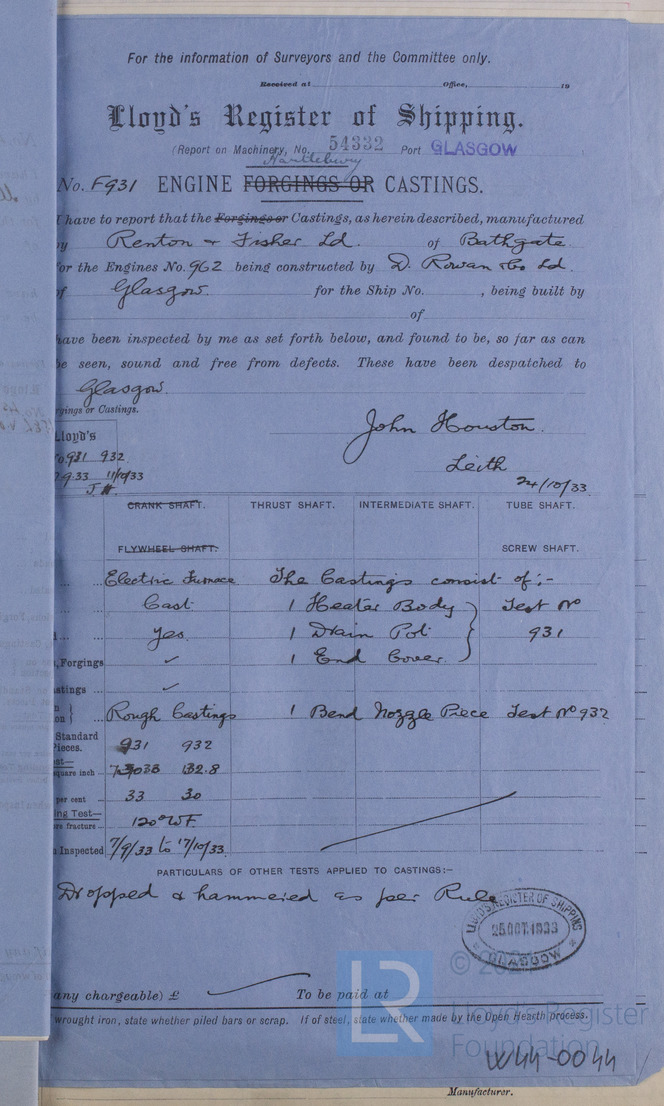 For the information of Surveyors and the Committee only.
Received at Office, 19
Lloyd's Register of Shipping.
(Report on Machinery, No. 54332 Port GLASGOW
No. F931 ENGINE FORGINGS OR CASTINGS.
I have to report that the Forgings or Castings, as herein described, manufactured
by Renton & Fisher Ld. of Bathgate
for the Engines No. 962 being constructed by D. Rowan & Co Ld.
of Glasgow. for the Ship No. , being built by
of
have been inspected by me as set forth below, and found to be, so far as can
be seen, sound and free from defects. These have been despatched to
Glasgow.
rgings or Castings.
John Houston.
Lloyd's
No. 931 932
7.9.33 11/10/33
J.H.
Leith
24/10/33.
CRANK SHAFT. THRUST SHAFT. INTERMEDIATE SHAFT. TUBE SHAFT.
FLYWHEEL SHAFT. SCREW SHAFT.
Electric Furnace The Castings consist of:-
Cast 1 Heater Body Test No
Yes 1 Drain Pot 931
, Forgings ✓ 1 End Cover.
astings ✓
on } Rough Castings 1 Bend Nozzle Piece Test No 932
Standard
Pieces. 931 932
square inch 32.8
per cent 33 30
ing Test—
re fracture 120° WF
Inspected 7/9/33 to 17/10/33.
PARTICULARS OF OTHER TESTS APPLIED TO CASTINGS:—
Dropped & hammered as per Rule
LLOYD'S REGISTER OF SHIPPING
25 OCT. 1933
GLASGOW
any chargeable) £ To be paid at
wrought iron, state whether piled bars or scrap. If of steel, state whether made by the Open Hearth process.
LR
Lloyd's Register
Foundation
W44-0044
Manufacturer.